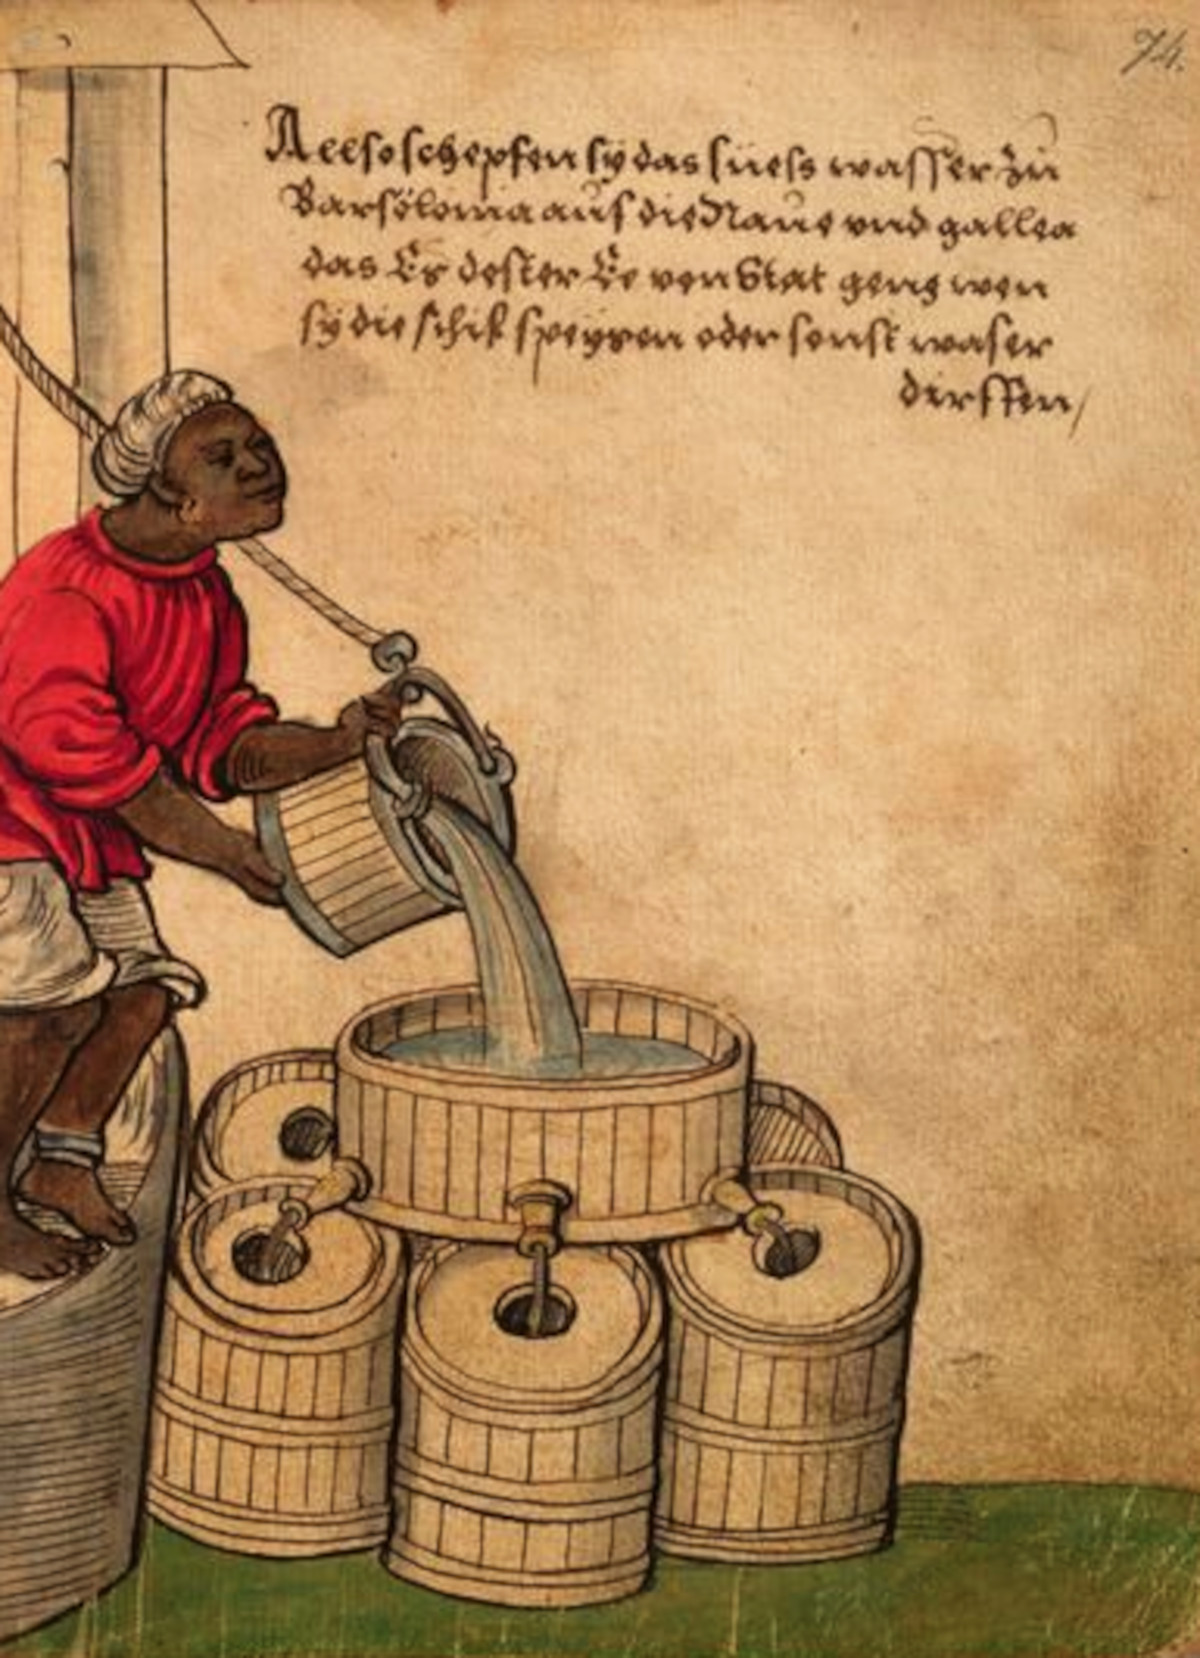 74.
Allso schepfen sÿ das süess wasser zu
Barsölonia auf die Naue vnd gallea
das Es dester Ee von Stat geng wen
sÿ die schif speÿsen oder sonst waser
dirffen